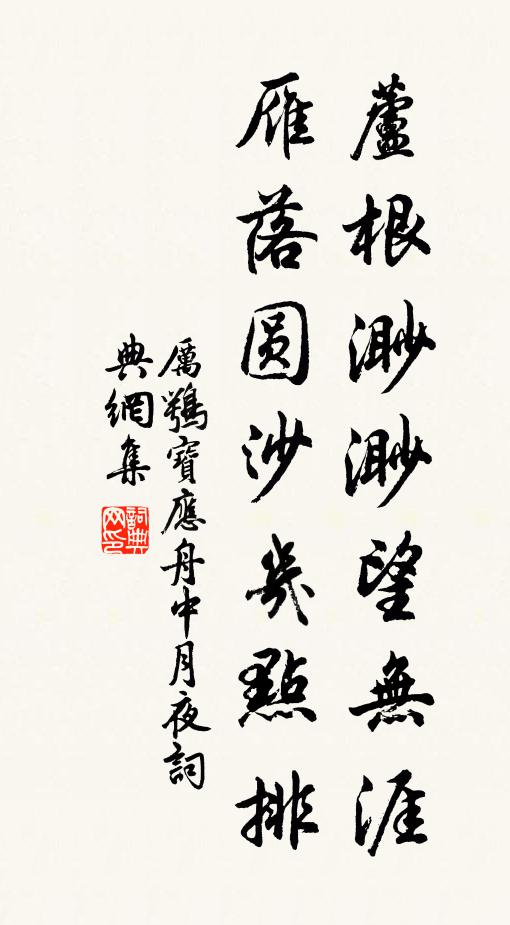 蘆根渺渺望無涯
雁落圓沙幾點排
厲鶚寶應舟中月夜詞
典網集
詞典
网印